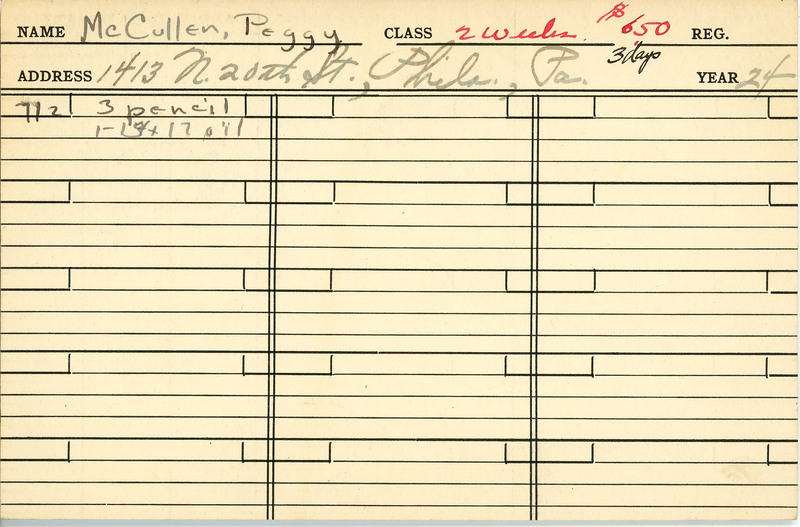 NAME McCullen, Peggy CLASS 2 weeks. $650 REG.
3 days
ADDRESS 1413 N. 20th St., Phila., Pa. YEAR 24
712 3 pencil